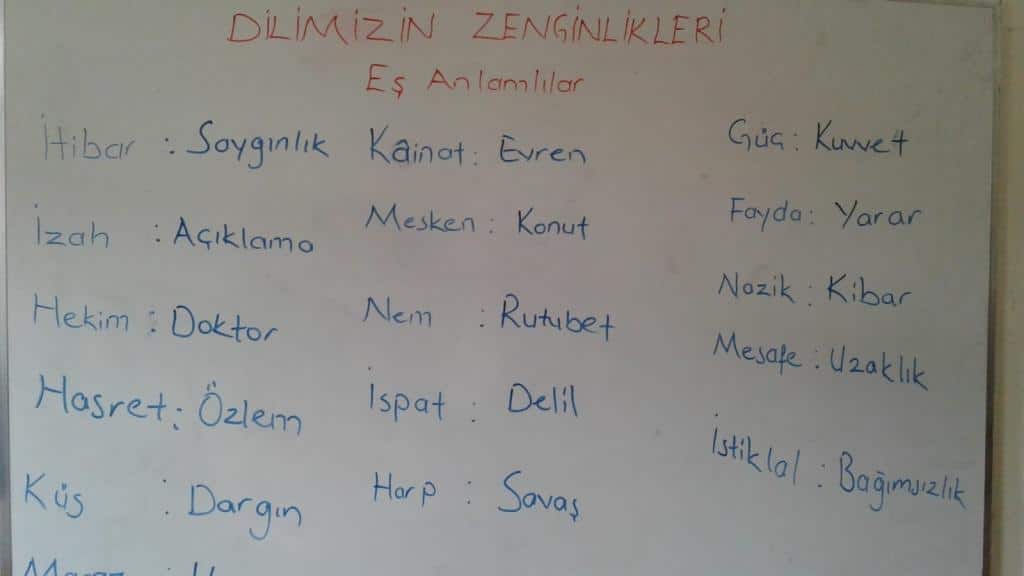 DİLİMİZİN ZENGİNLİKLERİ
Eş Anlamlılar
İtibar : Saygınlık
İzah : Açıklama
Hekim : Doktor
Hasret : Özlem
Küs : Dargın
Kainat : Evren
Mesken : Konut
Nem : Rutubet
İspat : Delil
Harp : Savaş
Güç : Kuvvet
Fayda : Yarar
Nazik : Kibar
Mesafe : Uzaklık
İstiklal : Bağımsızlık